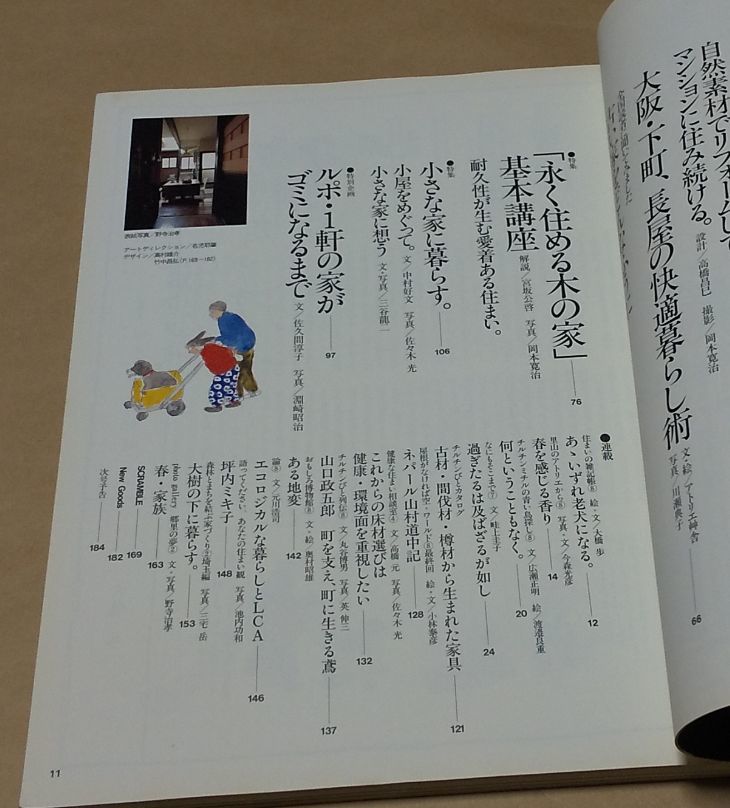 自然素材でリフォームして
マンションに住み続ける。
設計/高橋昌巳 撮影/岡本寛治
大阪・下町、長屋の快適暮らし術
文・絵/アトリエ縄舎
写真/川瀬典子
66
●特集
「永く住める木の家」
基本講座
解説/宮坂公啓 写真/岡本寛治
耐久性が生む愛着ある住まい。
76
●特集
小さな家に暮らす。
106
小屋をめぐって。
文/中村好文 写真/佐々木 光
小さな家に想う
文・写真/三谷龍二
●特別企画
ルポ・1軒の家が
ゴミになるまで
97
文/佐久間淳子 写真/淵崎昭治
表紙写真/野寺治孝
アートディレクション/
デザイン/高村雄介
竹中昌弘
●連載
住まいの雑記帳⑧
あゝいずれ老夫になる。
文・絵/大橋 歩
12
里山のアトリエから
春を感じる香り
写真・文/今森光彦
14
チルチンミチルの青い鳥探し⑧
何ということもなく。
文/広瀬正明 絵/渡邉良重
20
なにもそこまで⑦
過ぎたるは及ばざるが如し
文/畦上圭子
24
チルチンびとカタログ
古材・間伐材・樽材から生まれた家具
121
屋根がなければ空・ワールド⑥最終回
ネパール山村道中記
絵・文/小林泰彦
128
健康な住まい相談室④
これからの床材選びは
健康・環境面を重視したい
文/高橋 元 写真/佐々木 光
132
チルチンびと列伝⑧
山口政五郎 町を支え、町に生きる鳶
文/丸谷博男 写真/英 伸三
137
おもしろ博物館⑧
ある地変
文・絵/奥村昭雄
142
論⑧
エコロジカルな暮らしとLCA
文/元川浩司
146
語ってください。あなたの住まい観
坪内ミキ子
写真/池内功和
148
森林とまちを結ぶ家づくり②埼玉編
大樹の下に暮らす。
写真/三宅 岳
153
photo gallery 郷里の夢②
春・家族
文・写真/野寺治孝
163
SCRAMBLE
169
New Goods
182
次号予告
184
11